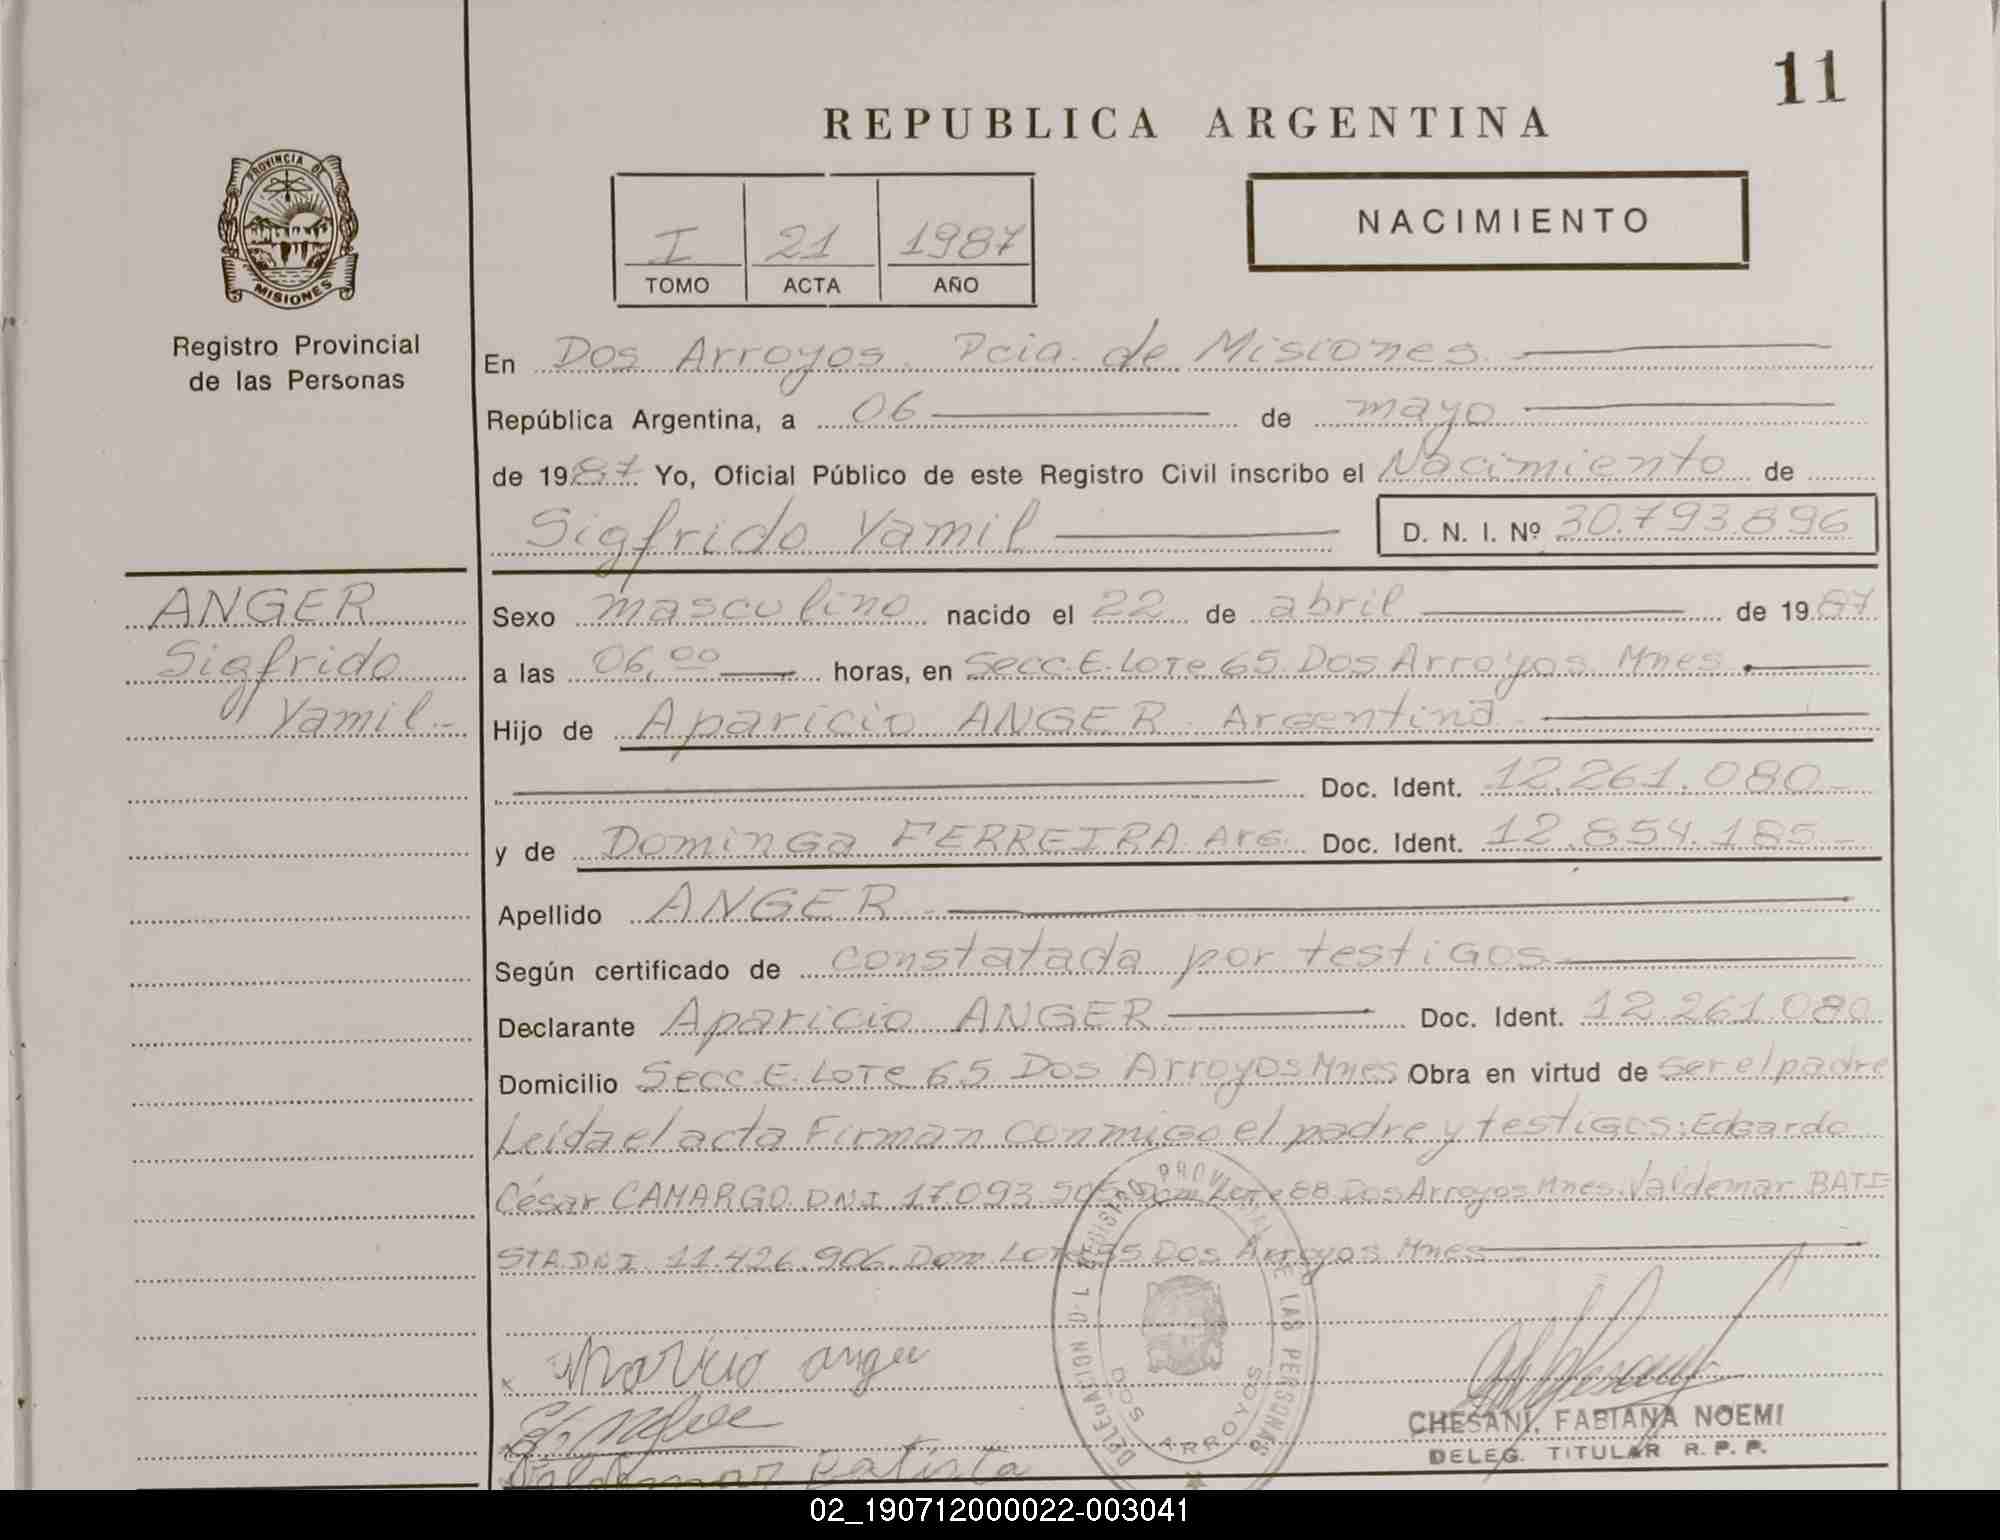 11
REPUBLICA ARGENTINA
PROVINCIA DE
MISIONES
Registro Provincial
de las Personas
I 21 1987
TOMO ACTA AÑO
NACIMIENTO
En Dos Arroyos. Pcia. de Misiones.
República Argentina, a 06 de mayo
de 1987. Yo, Oficial Público de este Registro Civil inscribo el Nacimiento de
Sigfrido Yamil D. N. I. Nº 30.793.896
ANGER
Sigfrido
Yamil.-
Sexo masculino nacido el 22 de abril de 1987
a las 06,00 horas, en Secc. E. Lote 65. Dos Arroyos. Mnes.
Hijo de Aparicio ANGER. Argentina
Doc. Ident. 12.261.080-
y de Dominga FERREIRA. Arg. Doc. Ident. 12.854.185-
Apellido ANGER
Según certificado de constatada por testigos
Declarante Aparicio ANGER Doc. Ident. 12.261.080
Domicilio Secc. E. Lote 65 Dos Arroyos Mnes Obra en virtud de ser el padre
Leída el acta Firman conmigo el padre y testigos: Edgardo
César CAMARGO. DNI 17.093.505 Dom. Lote 88 Dos Arroyos Mnes. Valdemar BATI-
STA. DNI 11.426.906. Dom. Lote Dos Arroyos Mnes
anger
Valdemar Batista
DELEGACION REGISTRO PROVINCIAL DE LAS PERSONAS
DOS ARROYOS
CHESANI, FABIANA NOEMI
DELEG. TITULAR R. P. P.
02_190712000022-003041